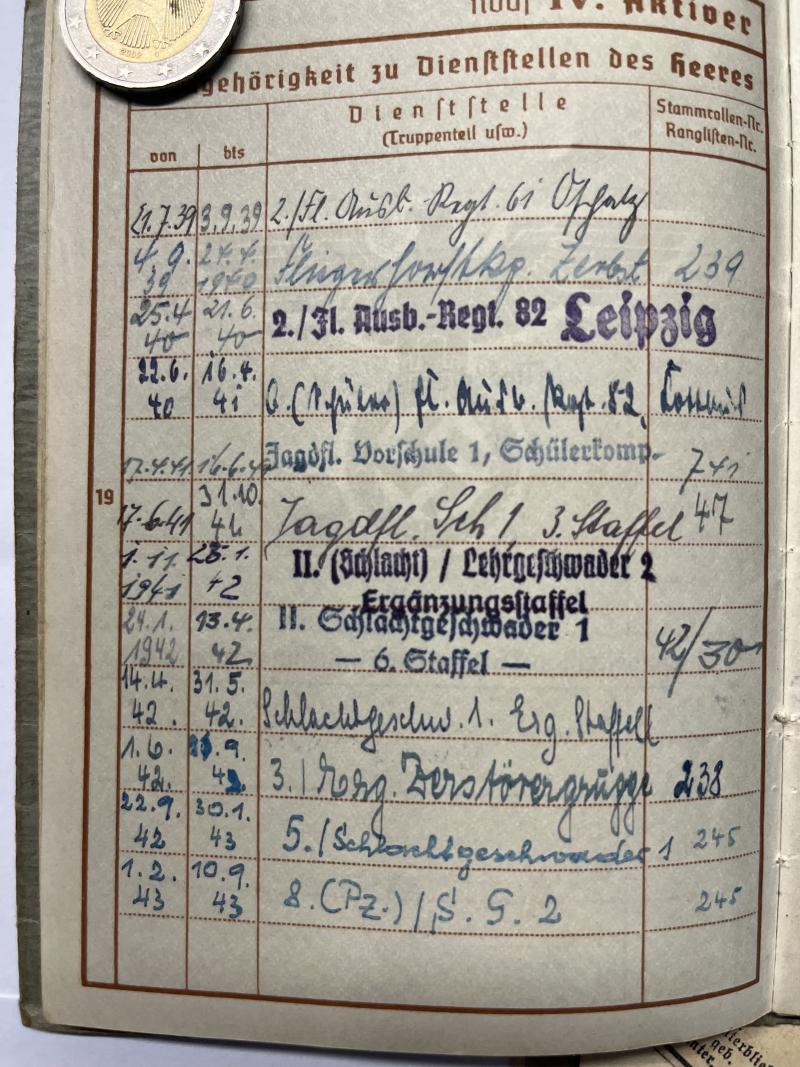 Noch IV. Aktiver
gehörigkeit zu Dienststellen des Heeres
von
bis
Dienststelle
(Truppenteil usw.)
Stammrollen-Nr.
Ranglisten-Nr.
21.7.39 3.9.39 2./Fl. Ausb. Regt. 61 Oschatz
4.9. 39 24.4. 1940 Fliegerhorstkp. Zerbst 239
25.4 40 21.6. 40 2./Fl. Ausb.-Regt. 82 Leipzig
22.6. 40 16.4. 41 (Schüler) Fl. Ausb. Regt. 82, Cottbus
17.4.41 16.6. Jagdfl. Vorschule 1, Schülerkomp. 741
19
17.6.41 31.10. 41 Jagdfl. Sch 1, 3. Staffel 47
1.11. 1941 23.1. 42 II. (Schlacht) / Lehrgeschwader 2
Ergänzungsstaffel
24.1. 1942 13.4. 42 II. Schlachtgeschwader 1
— 6. Staffel —
42/30
14.4. 42. 31.5. 42. Schlachtgeschw. 1. Erg. Staffell
1.6. 42. 9. 42 3./Erg. Zerstörergruppe 238
22.9. 42 30.1. 43 5./Schlachtgeschwader 1 245
1.2. 43 10.9. 43 8.(Pz.)/S.G.2 245